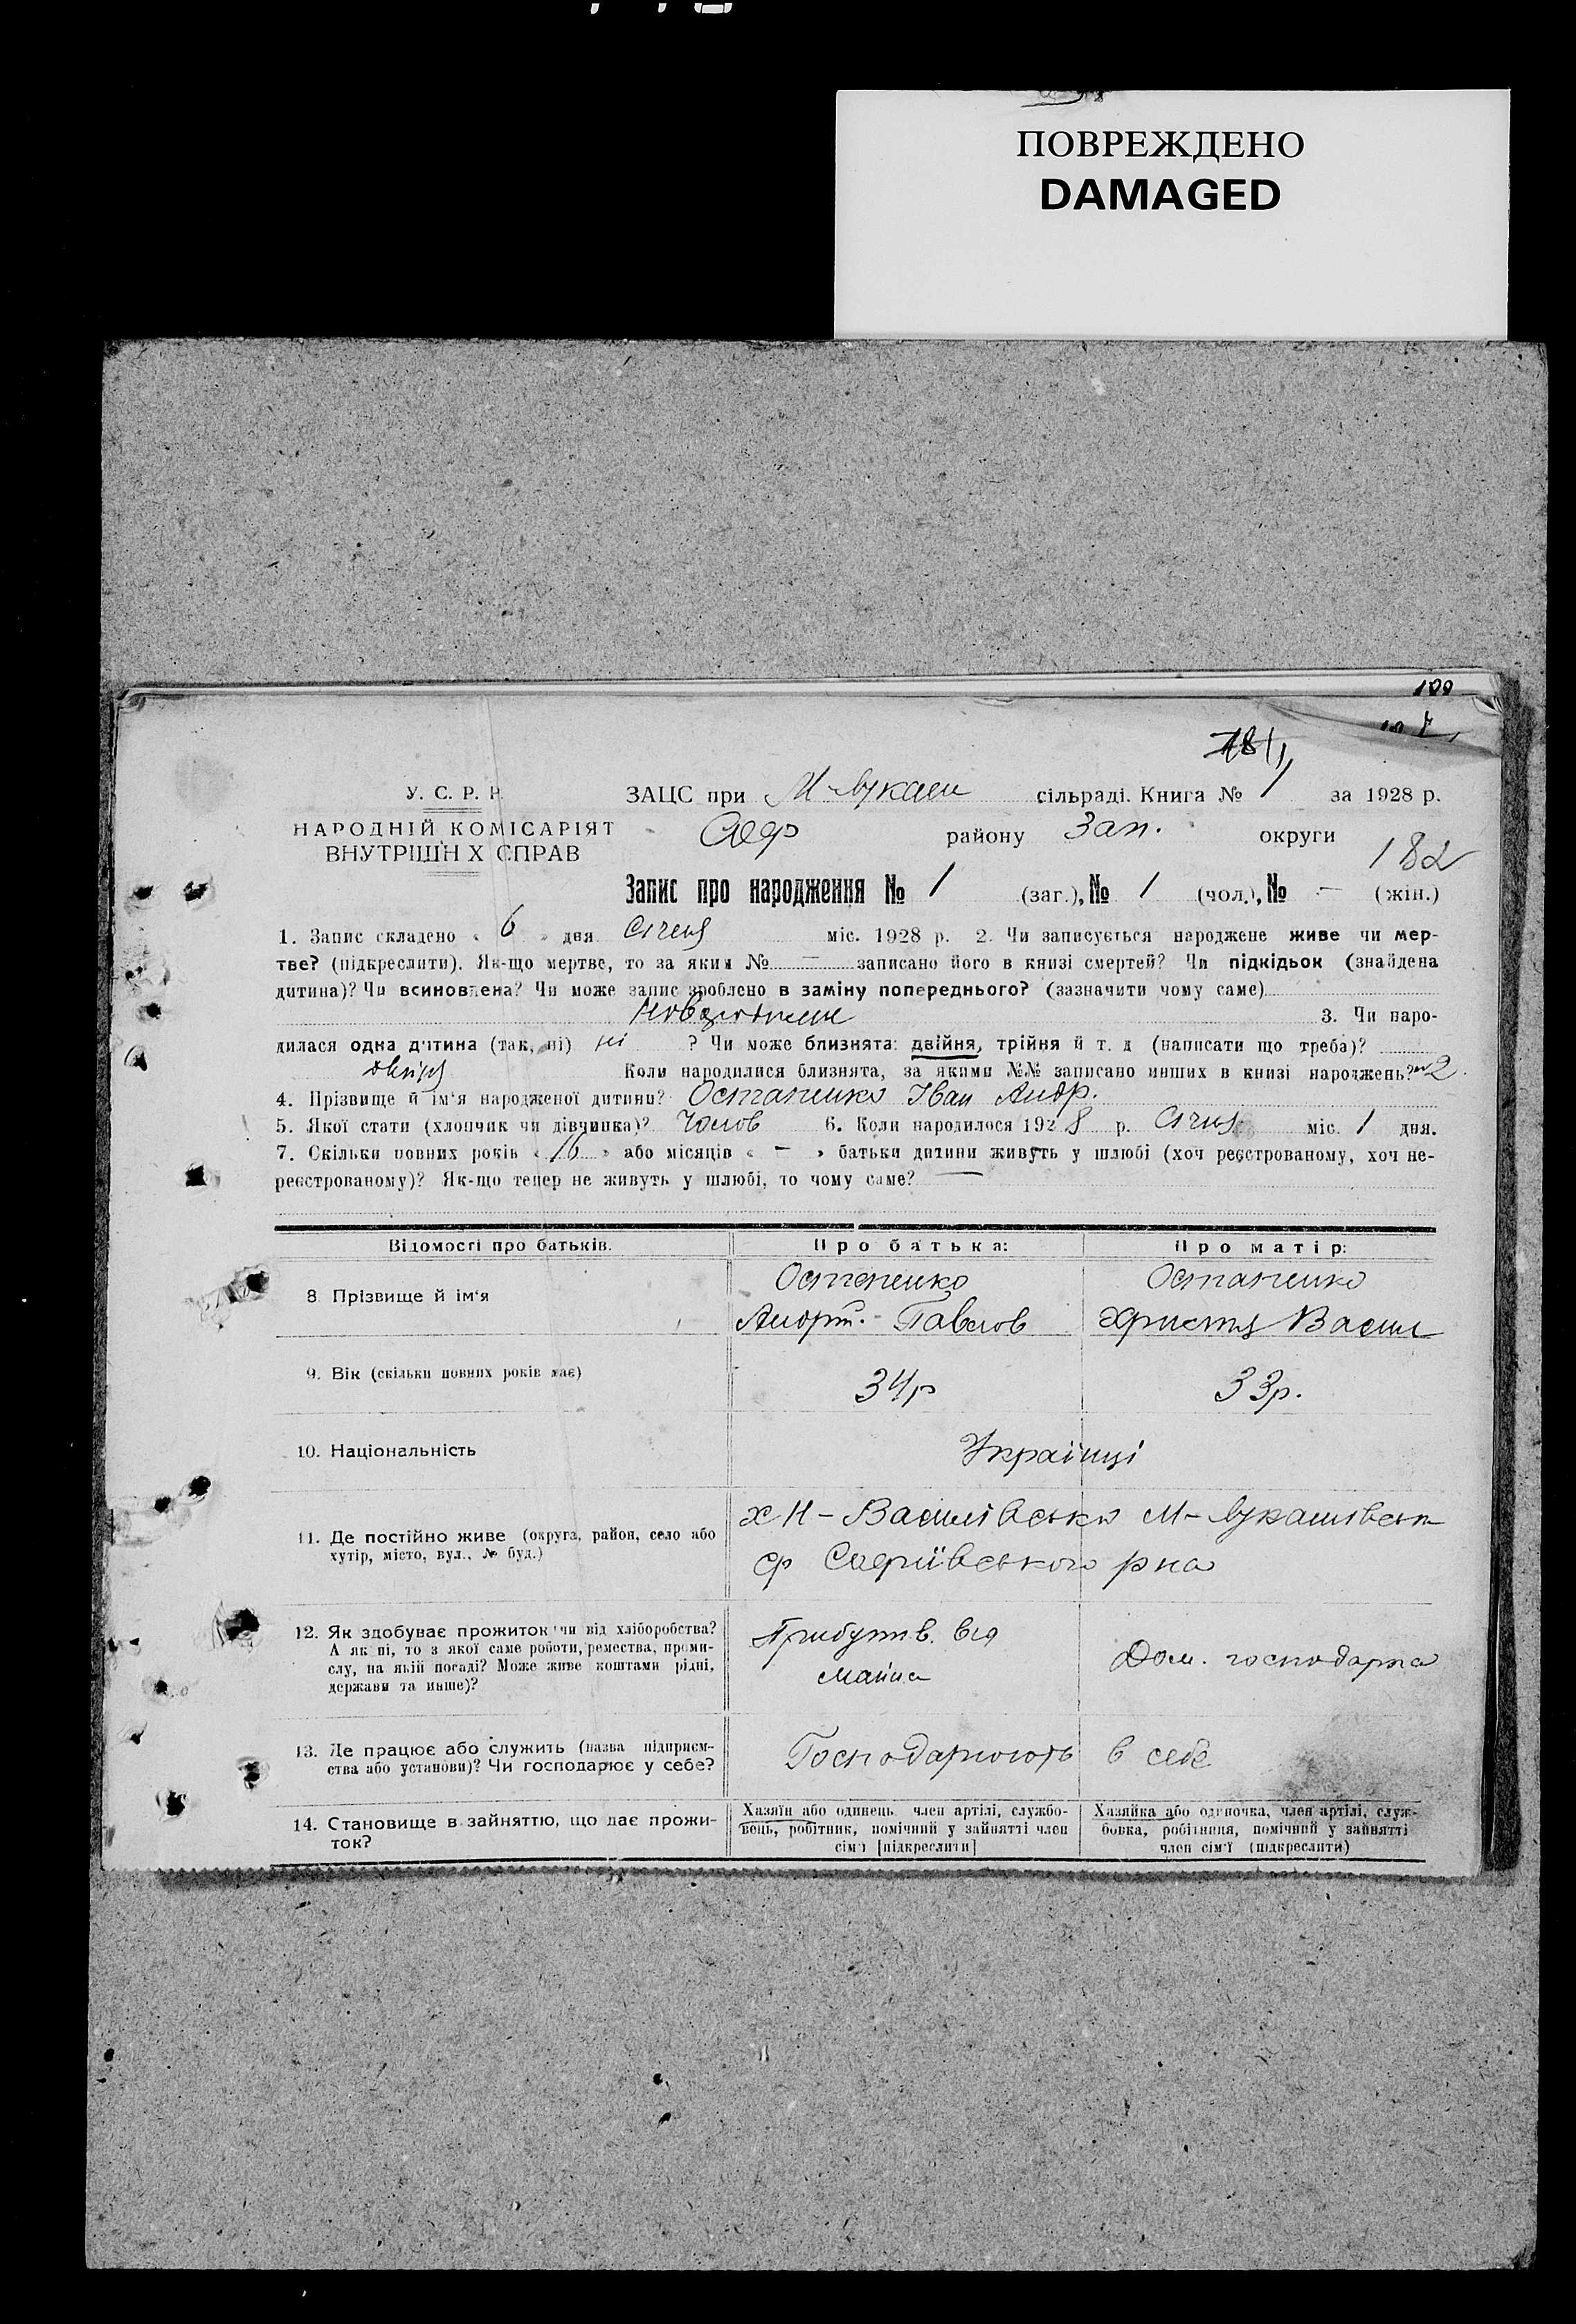 ПОВРЕЖДЕНО
DAMAGED
100
181
У. С. Р. Р.
НАРОДНІЙ КОМІСАРІЯТ
ВНУТРІШН Х СПРАВ
ЗАЦС при М-Лукаш сільраді. Книга № 1 за 1928 р.
Соф району Зап. округи
182
Запис про народження № 1 (заг.), № 1 (чол.), № — (жін.)
1. Запис складено « 6 » дня Січня міс. 1928 р. 2. Чи записується народжене живе чи мер-
тве? (підкреслити). Як-що мертве, то за яким № — записано його в книзі смертей? Чи підкідьок (знайдена
дитина)? Чи всиновлена? Чи може запис зроблено в заміну попереднього? (зазначити чому саме)
3. Чи наро-
дилася одна дитина (так, ні) ні ? Чи може близнята: двійня, трійня й т. д (написати що треба)?
двійня Коли народилися близнята, за якими №№ записано инших в книзі народжень? № 2.
4. Прізвище й ім'я народженої дитини? Остапенко Іван Андр.
5. Якої стати (хлопчик чи дівчинка)? Чолов 6. Коли народилося 1928 р. Січня міс. 1 дня.
7. Скільки повних років « 16 » або місяців « — » батьки дитини живуть у шлюбі (хоч реєстрованому, хоч не-
реєстрованому)? Як-що тепер не живуть у шлюбі, то чому саме? —
Відомості про батьків. Про батька: Про матір:
8. Прізвище й ім'я
Остапенко Остапенко
Андрій Павлов Христя Васил
9. Вік (скільки повних років має) 34р 33р.
10. Національність Українці
11. Де постійно живе (округа, район, село або
хутір, місто, вул., № буд.)
х Н-Василівська М-Лукашівськ
Софіївського рна
12. Як здобуває прожиток чи від хліборобства?
А як ні, то з якої саме роботи, ремества, проми-
слу, на якій посаді? Може живе коштами рідні,
держави та инше)?
Прибутів. від
майна
Дом. господарка
13. Де працює або служить (назва підприєм-
ства або установи)? Чи господарює у себе?
Господарюють в себе
14. Становище в зайняттю, що дає прожи-
ток?
Хазяїн або одинець, член артілі, службо-
вець, робітник, помічний у зайнятті член
сім'ї [підкреслити]
Хазяйка або одиночка, член артілі, служ-
бовка, робітниця, помічний у зайнятті
член сім'ї (підкреслити)